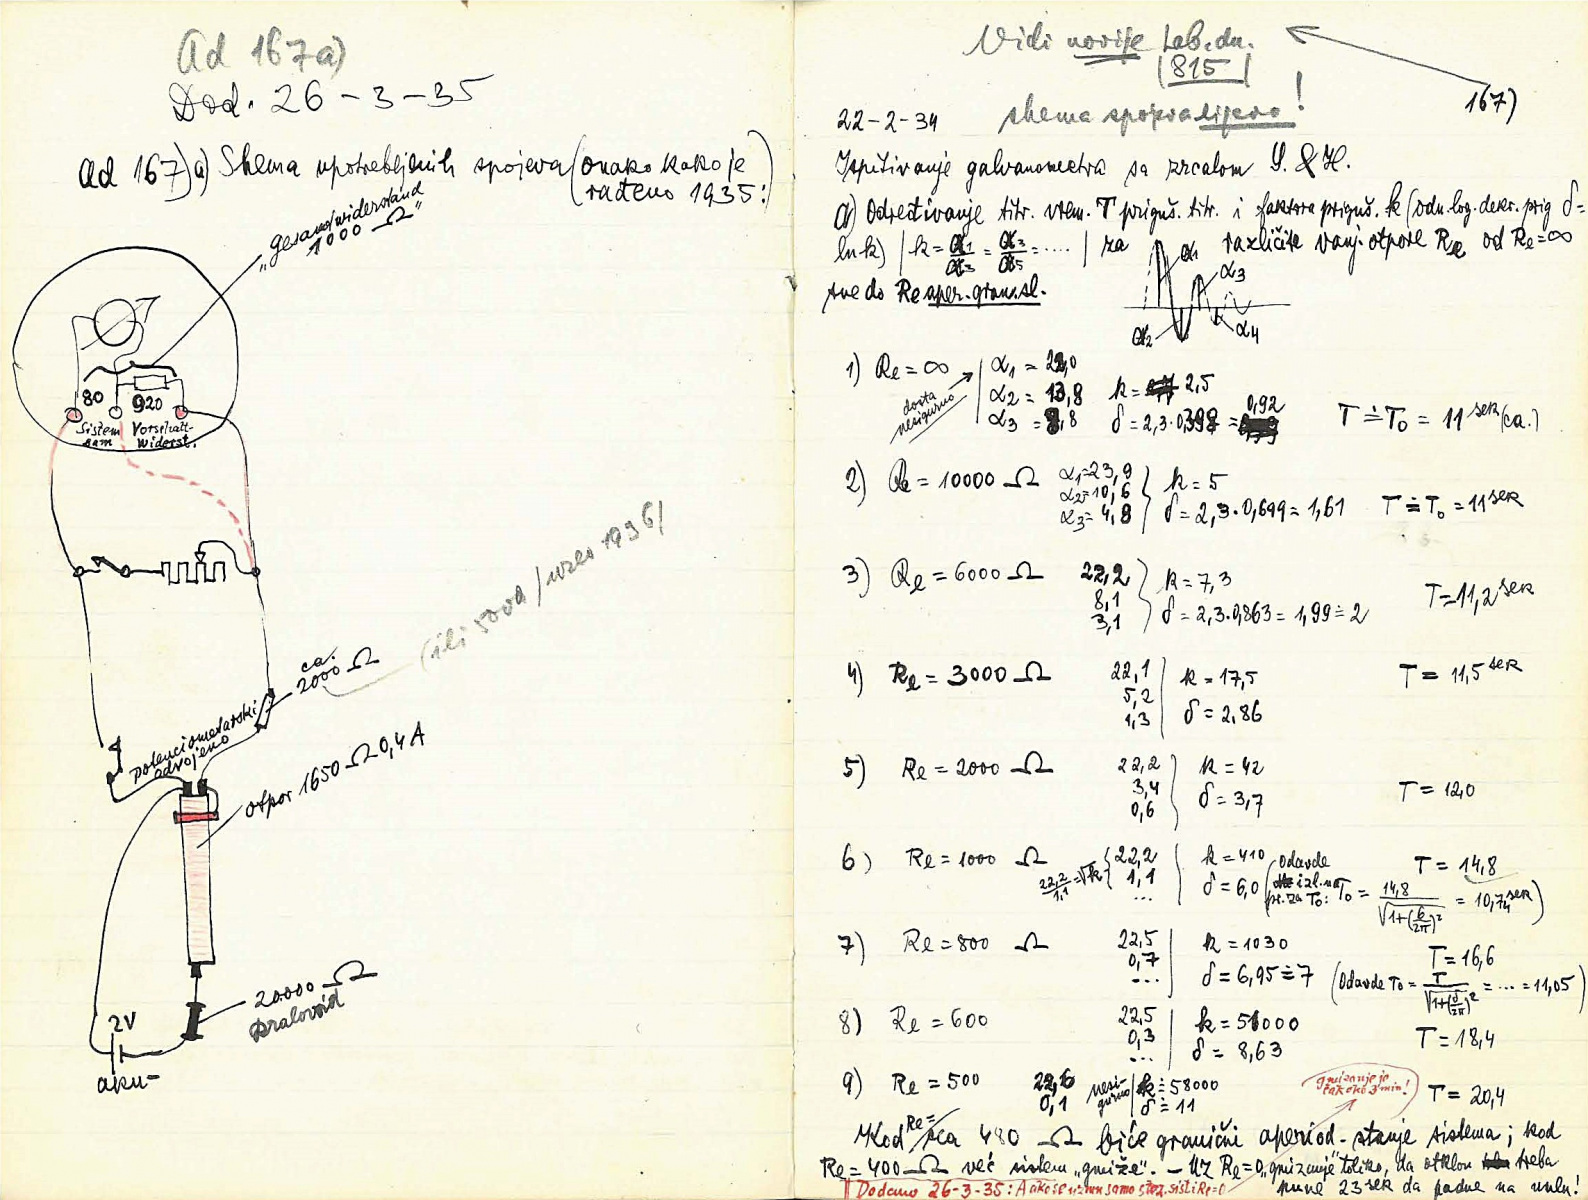 Ad 167a)
Dod. 26-3-35
ad 167) a) Shema upotrebljenih spojeva (onako kako je
rađeno 1935:)
"Gesamtwiderstand
1000 Ω"
80 920
System Vorschalt-
sam widerst.
(ili 500Ω / uzeo 1936)
ca.
2000 Ω
potenciometarski
odvojeno
otpor 1650 Ω 0,4 A
20000 Ω
Dralovid
2V
aku-
Vidi novije Lab. dn.
815
167)
shema spojeva lijevo!
22-2-34
Ispitivanje galvanometra sa zrcalom S. & H.
a) Određivanje titr. vrem. T priguš. titr. i faktora priguš. k (odn. log. dekr. prig δ=
ln k) | k = α1/α3 = α3/α5 = .... | za različite vanj. otpore Re od Re=∞
sve do Re aper. gran. sl.
α1
α3
α2
α4
1) Re = ∞
dosta nesigurno
α1 = 22,0
α2 = 13,8
α3 = 8,8
k = 2,5
δ = 2,3·0,398 = 0,92
T ≐ T0 = 11 sek (ca.)
2) Re = 10000 Ω
α1=23,9
α2=10,6
α3=4,8
k = 5
δ = 2,3·0,699 = 1,61
T ≐ T0 = 11 sek
3) Re = 6000 Ω
22,2
8,1
3,1
k = 7,3
δ = 2,3·0,863 = 1,99 ≐ 2
T = 11,2 sek
4) Re = 3000 Ω
22,1
5,2
1,3
k = 17,5
δ = 2,86
T = 11,5 sek
5) Re = 2000 Ω
22,2
3,4
0,6
k = 42
δ = 3,7
T = 12,0
6) Re = 1000 Ω
22,2/1,1 = √k
22,2
1,1
...
k = 410
δ = 6,0
T = 14,8
(odavde izl. za T0: T0 = 14,8/√(1+(6/2π)²) = 10,74 sek)
7) Re = 800 Ω
22,5
0,7
...
k = 1030
δ = 6,95 ≐ 7
T = 16,6
(Odavde T0 = T/√(1+(δ/2π)²) = ... = 11,05)
8) Re = 600
22,5
0,3
...
k = 56000
δ = 8,63
T = 18,4
9) Re = 500
22,6
0,1
nesigurno
k ≐ 58000
δ ≐ 11
T = 20,4
gmizanje je
čak oko 3 min!
Kod Re = ca 480 Ω biće granični aperiod. stanje sistema; kod
Re = 400 Ω već sistem "gmiže". - Uz Re=0 "gmizanje" toliko, da otklon treba
pune 23 sek da padne na nulu!
Dodano 26-3-35: A ako se uzme samo sistem Re=0